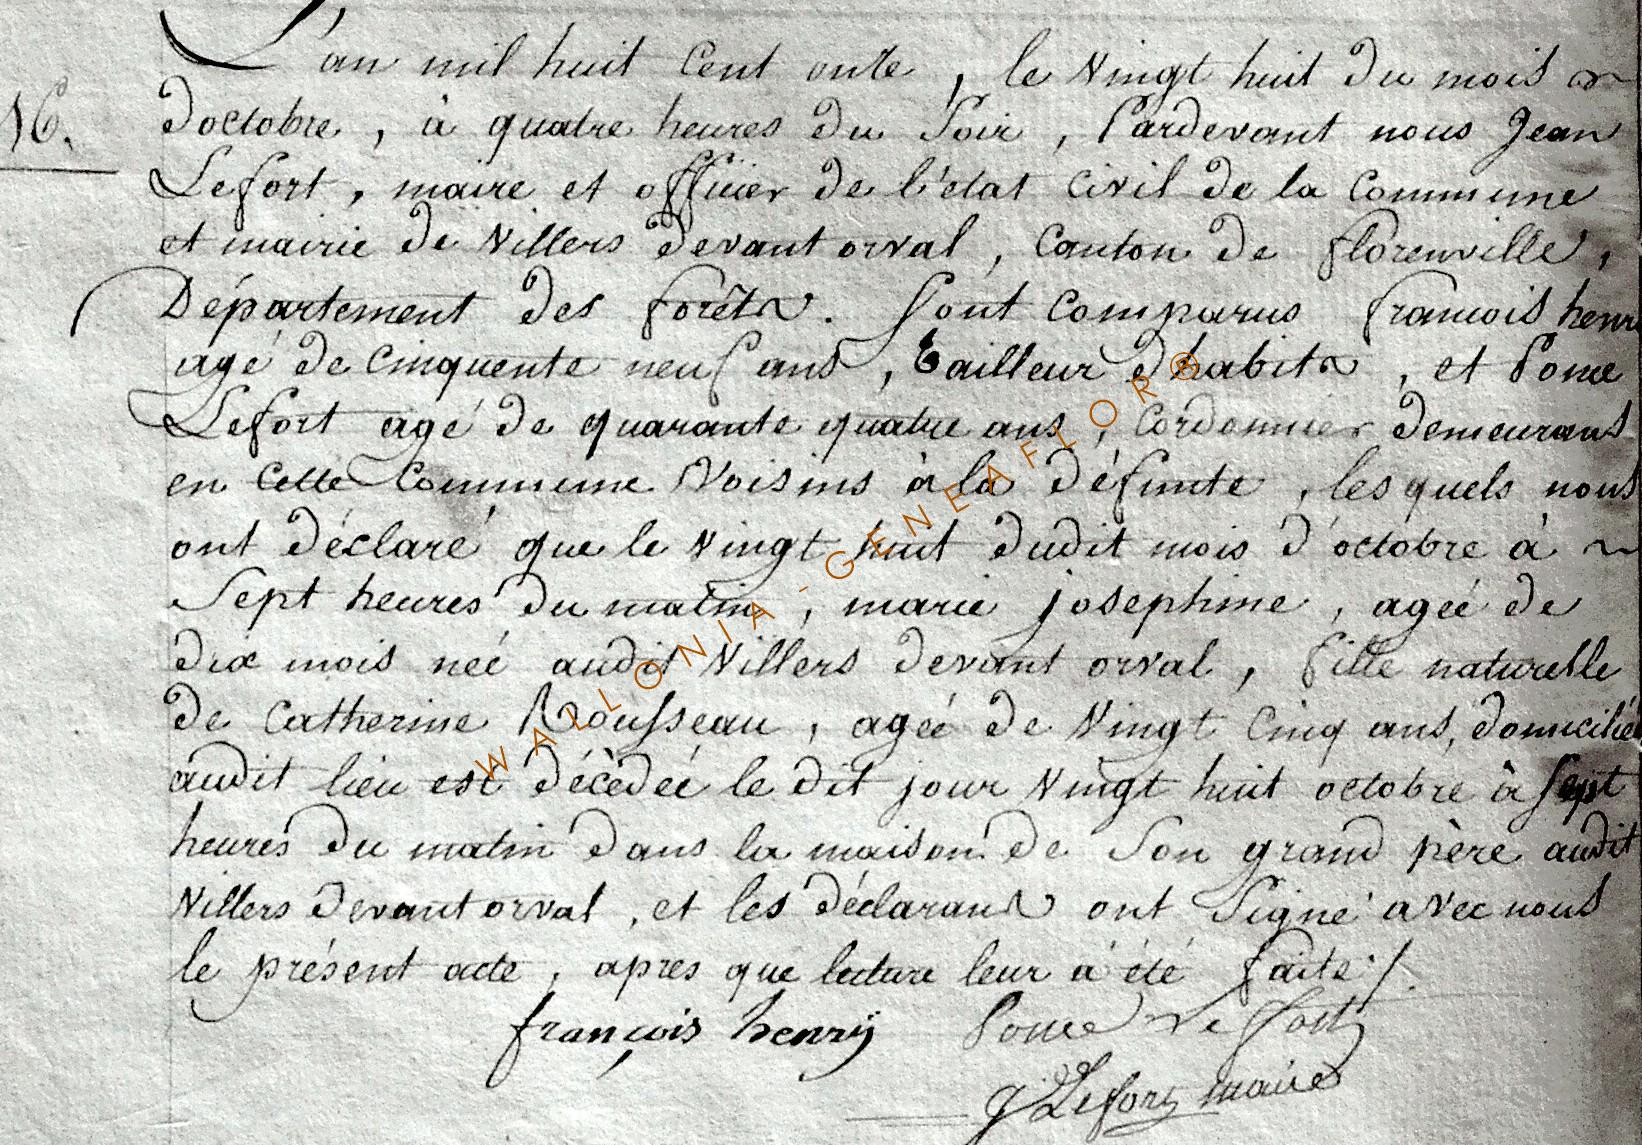 L'an mil huit cent onze, le vingt huit du mois
16.
d'octobre, à quatre heures du soir, Pardevant nous Jean
Lefort, maire et officier de l'état civil de la commune
et mairie de Villers devant orval, canton de florenville,
Département des forêts. Sont comparus francois henri
agé de cinquante neuf ans, tailleur d'habits, et Ponce
Lefort agé de quarante quatre ans, cordonnier demeurans
en cette commune Voisins à la défunte, lesquels nous
ont déclaré que le vingt huit dudit mois d'octobre à
sept heures du matin, marie josephine, ageé de
dix mois neé audit Villers devant orval, fille naturelle
de Catherine Rousseau, ageé de vingt cinq ans, domicilié
audit lieu est décèdeé le dit jour vingt huit octobre à sept
heures du matin dans la maison de son grand père audit
Villers devant orval, et les déclarans ont signé avec nous
le présent acte, apres que lecture leur à été faite./.
françois henrÿ Ponce Le fort
J Lefort maire
WALLONIA-GENEAFLOR®